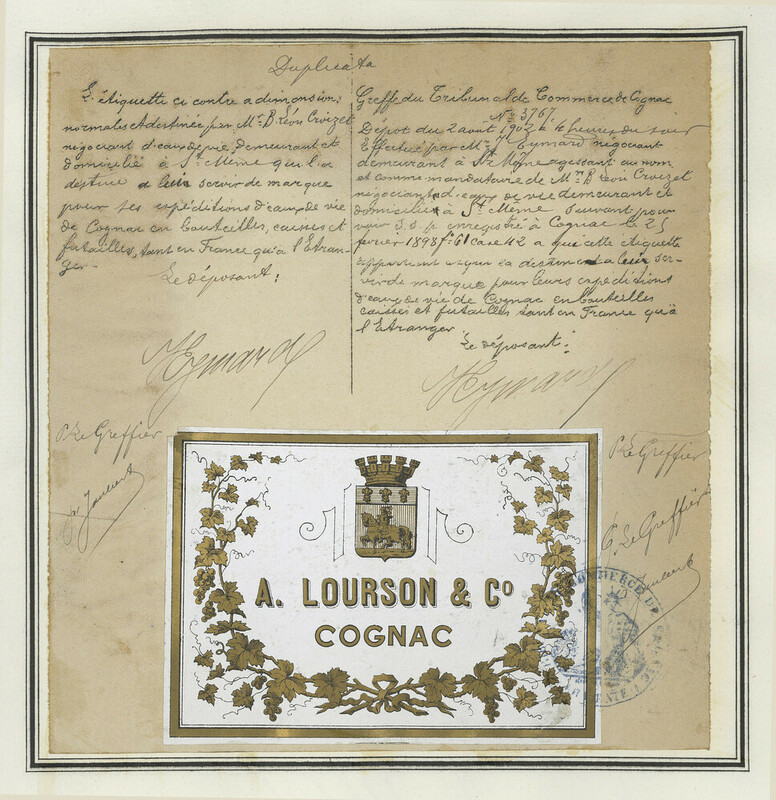 Duplicata
L'étiquette ci contre a dimensions
normales et destinée par Mr. B. Léon Croizet
négociant d'eau de vie demeurant et
domicilié à St. Même qu'il a
destine a leur servir de marque
pour ses expéditions d'eaux de vie
de Cognac en bouteilles, caisses et
futailles, tant en France qu'à l'Etran-
ger.
Le déposant:
Heymard
P. Le Greffier
Greffe du Tribunal de Commerce de Cognac
No. 3767.
Dépot du 2 août 1902 à 4 heures du soir
Effectué par Mr. Eymard négociant
demeurant à St Même agissant au nom
et comme mandataire de Mr. B. Léon Croizet
négociant d'eaux de vie demeurant et
domicilié à St. Même suivant pou-
voir s.s.p. enregistré à Cognac le 25
fevrier 1898 fo. 61 case 42 a que cette étiquette
appartient la destinent a leur ser-
vir de marque pour leurs expéditions
d'eaux de vie de Cognac en bouteilles
caisses et futailles tant en France qu'à
l'Etranger
Le déposant:
Heymard
P. Le Greffier
P. Le Greffier
A. LOURSON & Co
COGNAC
COMMERCE DE